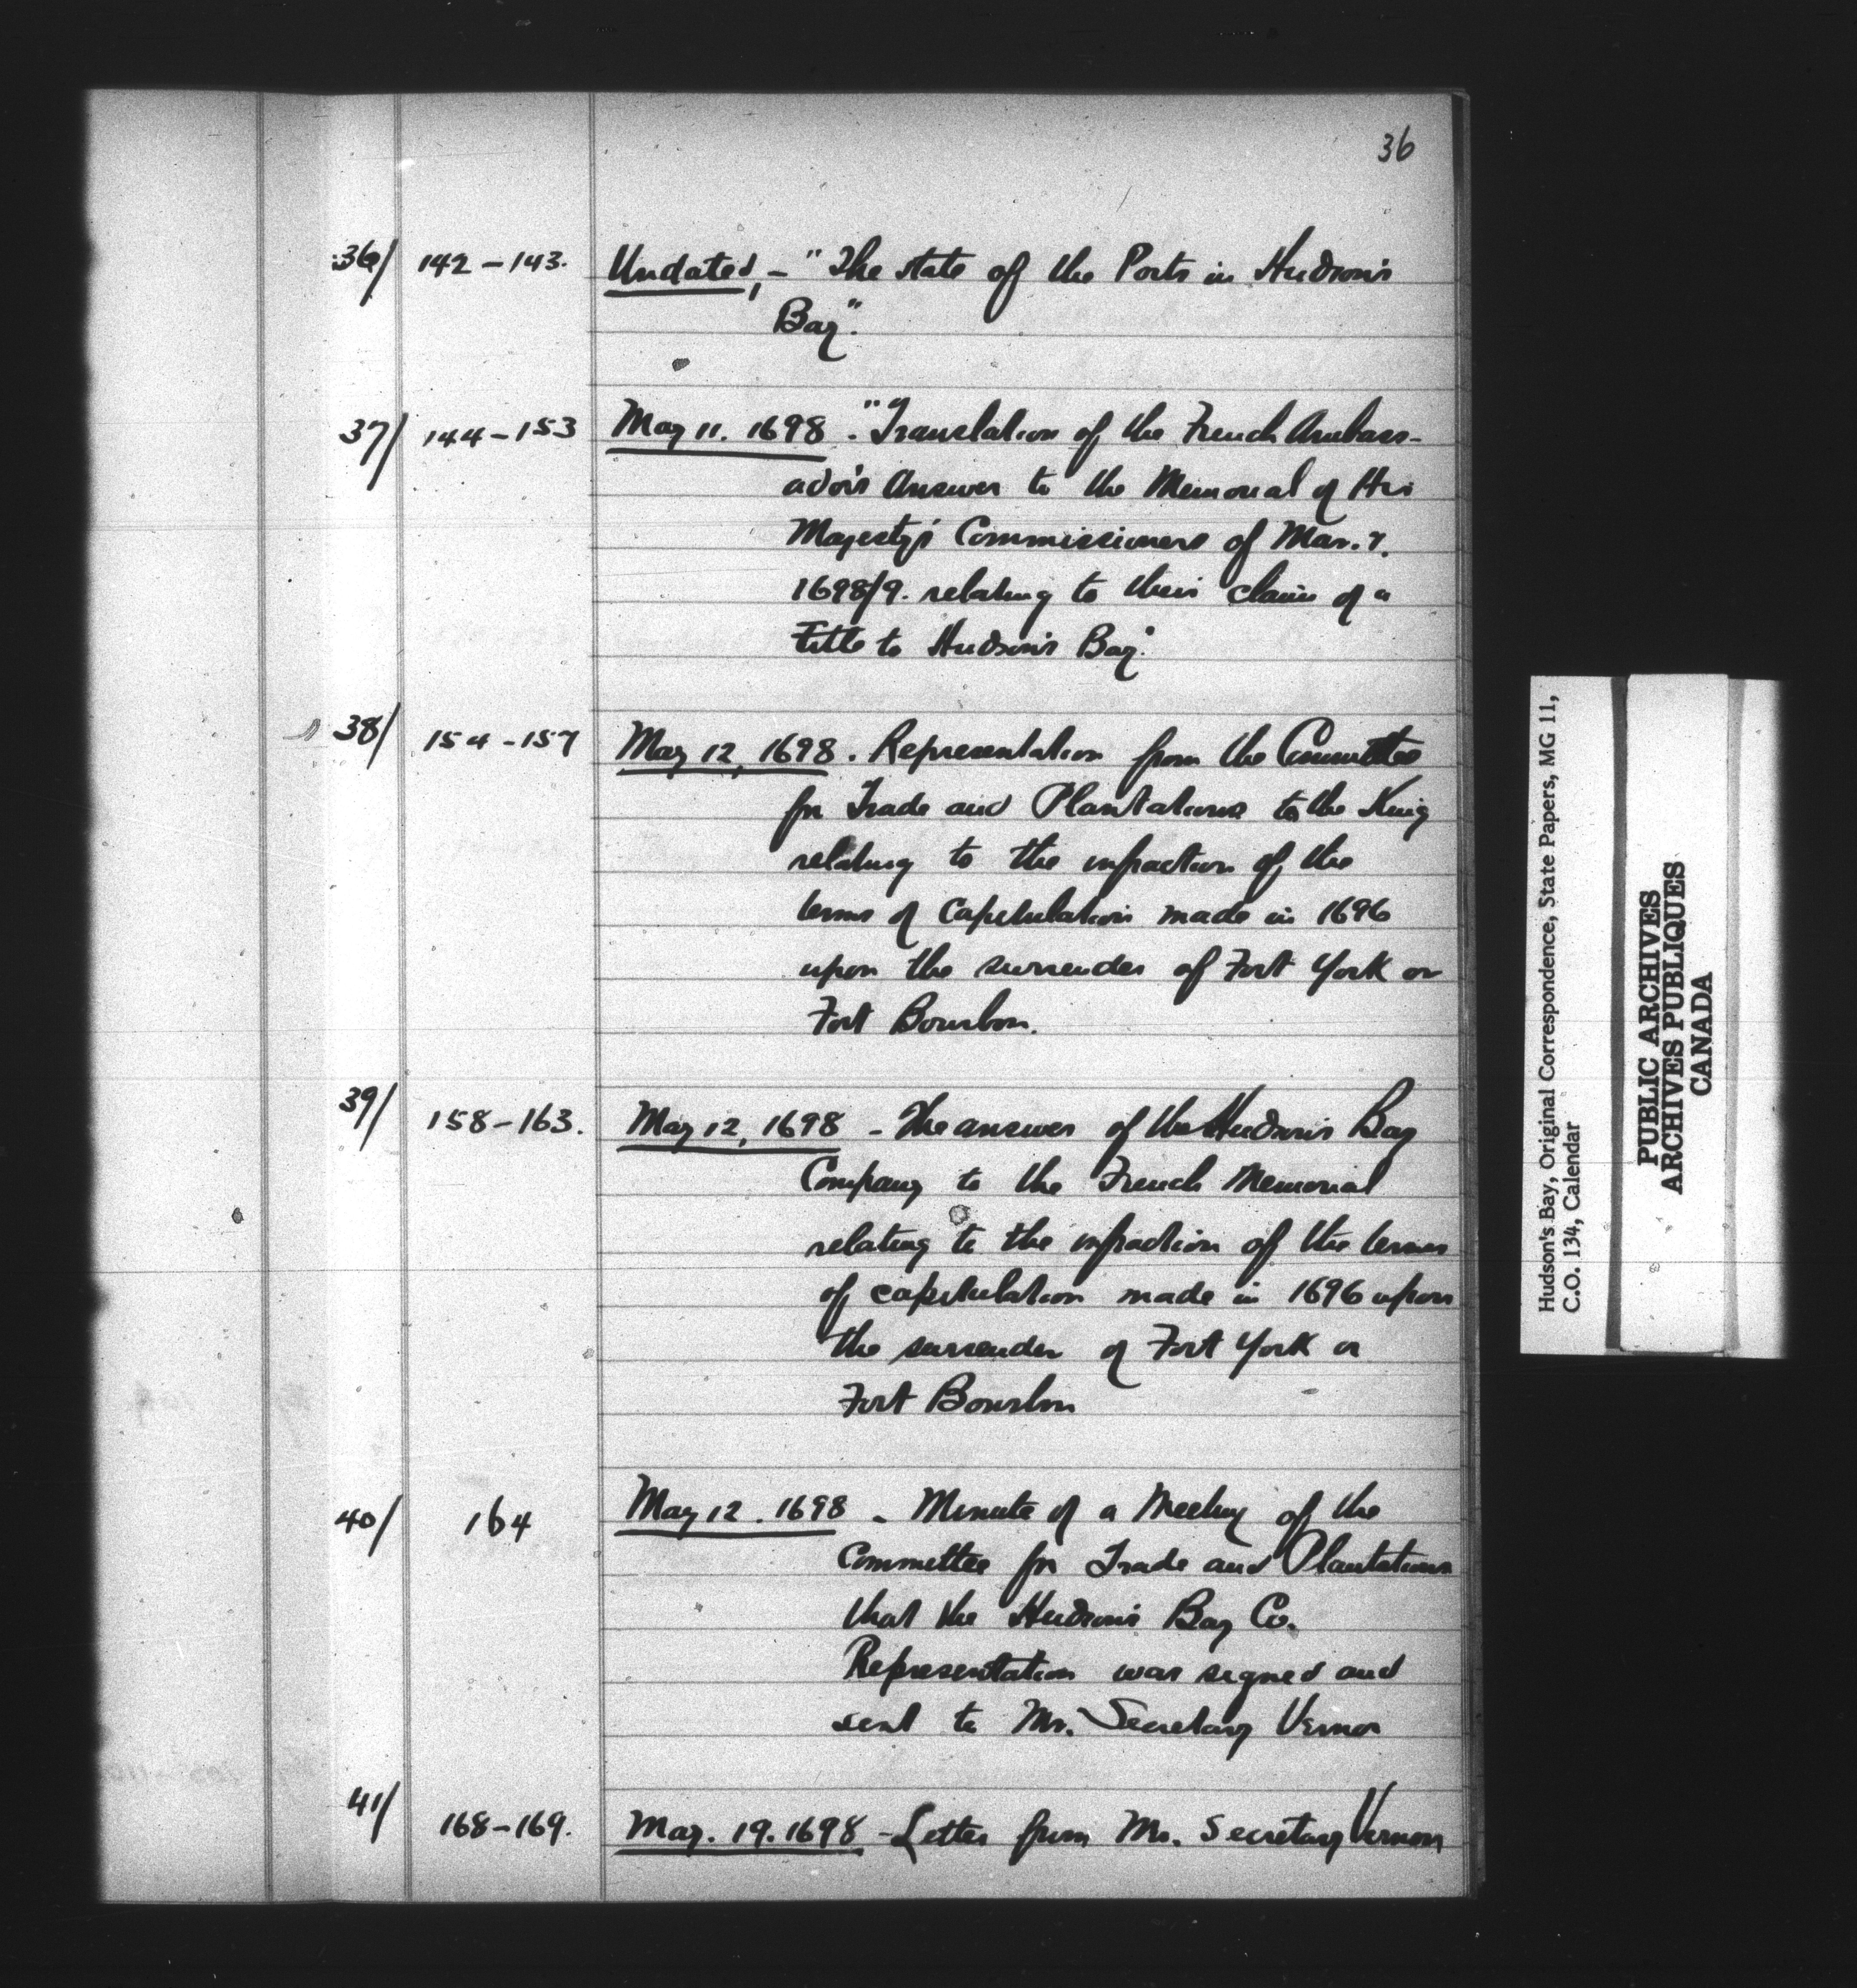 36
36/ 142-143. Undated, - "The state of the Ports in Hudson's
Bay".
37/ 144-153 May 11. 1698. "Translation of the French Ambass-
ador's Answer to the Memorial of His
Majesty's Commissioners of Mar. 7.
1698/9. relating to their claim of a
Title to Hudson's Bay."
38/ 154-157 May 12, 1698. Representation from the Committee
for Trade and Plantations to the King
relating to the infraction of the
terms of Capitulation made in 1696
upon the surrender of Fort York or
Fort Bourbon.
39/ 158-163. May 12, 1698 - The answer of the Hudson's Bay
Company to the French Memorial
relating to the infraction of the terms
of capitulation made in 1696 upon
the surrender of Fort York or
Fort Bourbon
40/ 164 May 12. 1698 - Minute of a Meeting of the
Committee for Trade and Plantations
that the Hudson's Bay Co.
Representation was signed and
sent to Mr. Secretary Vernon
41/ 168-169. May. 19. 1698 - Letter from Mr. Secretary Vernon
Hudson's Bay, Original Correspondence, State Papers, MG 11,
C.O. 134, Calendar
PUBLIC ARCHIVES
ARCHIVES PUBLIQUES
CANADA